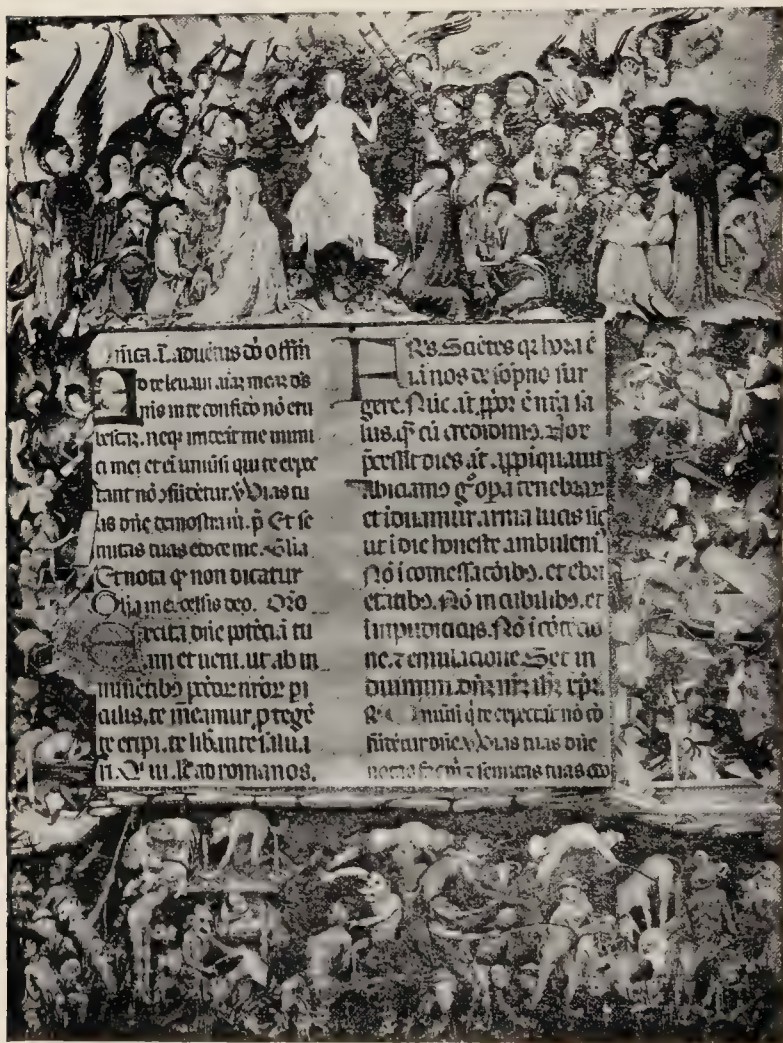 aduētus dō offm̄
d te leuaui aīaꝫ meaꝫ ds̄
mis in te confido nō eru
bescaꝫ. neqꝫ irrideāt me inimi
ci mei et eī uniūsi qui te expec
tant nō ɔfūdētur. V Vias tu
as dñe demostra m̄. p̄ Et se
mitas tuas edoce me. Glīa
Et nota qꝫ non dicatur
Glīa in excelsis deo. Orō
Excita dñe potēciā tu
am et ueni. ut ab in
minētibꝯ pctōꝝ nrōꝝ pi
culis, te mēamur, ꝓtegē
te eripi. te libānte salua
ri. Q̄ ui. lc̄ ad romanos.
FRs. Sciētes qꝫ hora ē
iā nos de sōpno sur
gere. Nūc. āt. ꝓpōr ē nr̄a sa
lus. qͣ cū credidimꝯ. Nox
p̄cessit dies. āt. apꝓpīquauit
Abiciamꝯ gͦ opa tenebraꝝ
et īduamur. arma lucis sic
ut ī die honeste. ambulemꝰ
Nō ī comessacōibꝯ. et ebri
etatibꝯ. Nō in cubilibꝯ. et
īmpudiciciis. Nō ī cōtēcio
ne. ⁊ emulacione. Set in
duimini. dñꝫ nr̄ꝫ ihꝫ xpꝫ.
uniūsi q̄ te expectāt nō cō
fūdētur dñe. V Vias tuas dñe
notas fac m̄ ⁊ semitas tuas